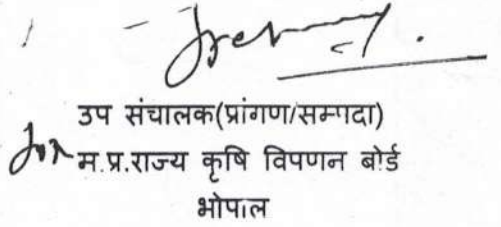 उप संचालक(प्रांगण/सम्पदा)
म.प्र.राज्य कृषि विपणन बोर्ड
भोपाल